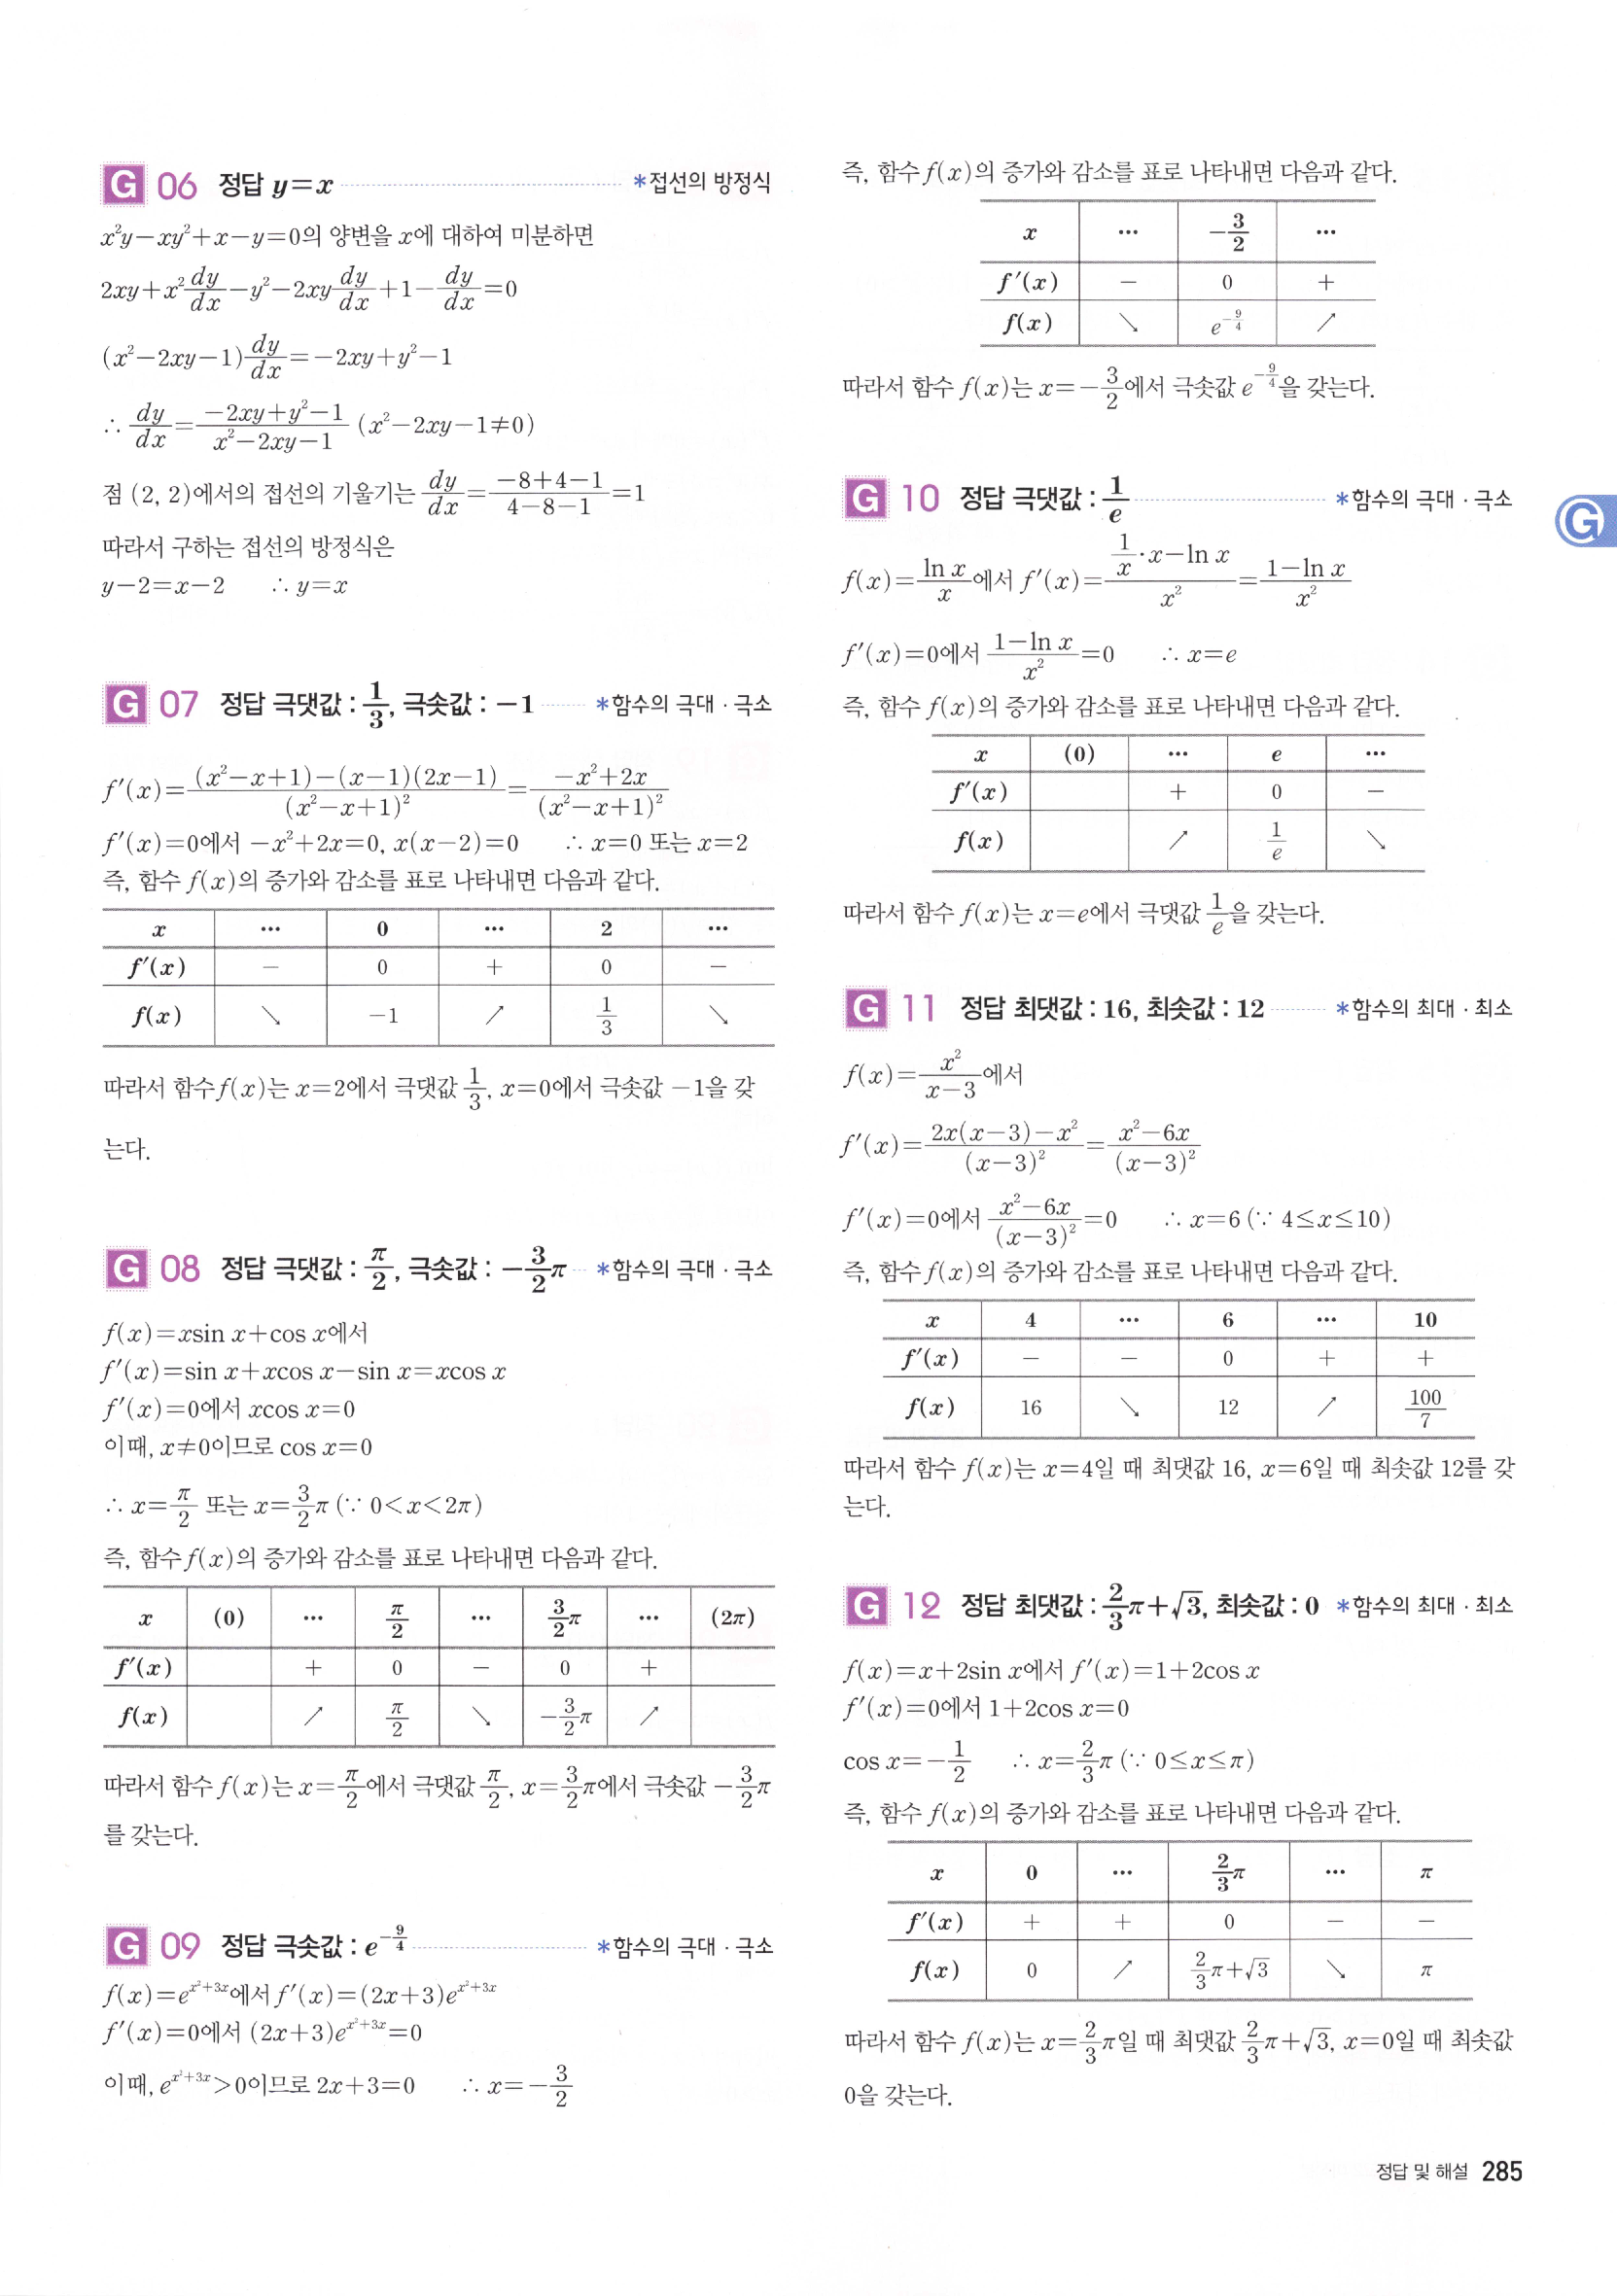 G 06 정답 y=x *접선의 방정식
x²y−xy²+x−y=0의 양변을 x에 대하여 미분하면
2xy+x² dy/dx −y²−2xy dy/dx +1− dy/dx =0
(x²−2xy−1) dy/dx =−2xy+y²−1
∴ dy/dx = (−2xy+y²−1)/(x²−2xy−1) (x²−2xy−1≠0)
점 (2, 2)에서의 접선의 기울기는 dy/dx = (−8+4−1)/(4−8−1) =1
따라서 구하는 접선의 방정식은
y−2=x−2 ∴ y=x
G 07 정답 극댓값 : 1/3, 극솟값 : −1 *함수의 극대·극소
f′(x)= ((x²−x+1)−(x−1)(2x−1))/(x²−x+1)² = (−x²+2x)/(x²−x+1)²
f′(x)=0에서 −x²+2x=0, x(x−2)=0 ∴ x=0 또는 x=2
즉, 함수 f(x)의 증가와 감소를 표로 나타내면 다음과 같다.
x ⋯ 0 ⋯ 2 ⋯
f′(x) − 0 + 0 −
f(x) ↘ −1 ↗ 1/3 ↘
따라서 함수 f(x)는 x=2에서 극댓값 1/3, x=0에서 극솟값 −1을 갖
는다.
G 08 정답 극댓값 : π/2, 극솟값 : −3/2π *함수의 극대·극소
f(x)=xsin x+cos x에서
f′(x)=sin x+xcos x−sin x=xcos x
f′(x)=0에서 xcos x=0
이때, x≠0이므로 cos x=0
∴ x=π/2 또는 x=3/2π (∵ 0<x<2π)
즉, 함수 f(x)의 증가와 감소를 표로 나타내면 다음과 같다.
x (0) ⋯ π/2 ⋯ 3/2π ⋯ (2π)
f′(x) + 0 − 0 +
f(x) ↗ π/2 ↘ −3/2π ↗
따라서 함수 f(x)는 x=π/2에서 극댓값 π/2, x=3/2π에서 극솟값 −3/2π
를 갖는다.
G 09 정답 극솟값 : e^(−9/4) *함수의 극대·극소
f(x)=e^(x²+3x)에서 f′(x)=(2x+3)e^(x²+3x)
f′(x)=0에서 (2x+3)e^(x²+3x)=0
이때, e^(x²+3x)>0이므로 2x+3=0 ∴ x=−3/2
즉, 함수 f(x)의 증가와 감소를 표로 나타내면 다음과 같다.
x ⋯ −3/2 ⋯
f′(x) − 0 +
f(x) ↘ e^(−9/4) ↗
따라서 함수 f(x)는 x=−3/2에서 극솟값 e^(−9/4)을 갖는다.
G 10 정답 극댓값 : 1/e *함수의 극대·극소
G
f(x)= ln x/x 에서 f′(x)= (1/x·x−ln x)/x² = (1−ln x)/x²
f′(x)=0에서 (1−ln x)/x² =0 ∴ x=e
즉, 함수 f(x)의 증가와 감소를 표로 나타내면 다음과 같다.
x (0) ⋯ e ⋯
f′(x) + 0 −
f(x) ↗ 1/e ↘
따라서 함수 f(x)는 x=e에서 극댓값 1/e을 갖는다.
G 11 정답 최댓값 : 16, 최솟값 : 12 *함수의 최대·최소
f(x)= x²/(x−3) 에서
f′(x)= (2x(x−3)−x²)/(x−3)² = (x²−6x)/(x−3)²
f′(x)=0에서 (x²−6x)/(x−3)² =0 ∴ x=6 (∵ 4≤x≤10)
즉, 함수 f(x)의 증가와 감소를 표로 나타내면 다음과 같다.
x 4 ⋯ 6 ⋯ 10
f′(x) − − 0 + +
f(x) 16 ↘ 12 ↗ 100/7
따라서 함수 f(x)는 x=4일 때 최댓값 16, x=6일 때 최솟값 12를 갖
는다.
G 12 정답 최댓값 : 2/3π+√3, 최솟값 : 0 *함수의 최대·최소
f(x)=x+2sin x에서 f′(x)=1+2cos x
f′(x)=0에서 1+2cos x=0
cos x=−1/2 ∴ x=2/3π (∵ 0≤x≤π)
즉, 함수 f(x)의 증가와 감소를 표로 나타내면 다음과 같다.
x 0 ⋯ 2/3π ⋯ π
f′(x) + + 0 − −
f(x) 0 ↗ 2/3π+√3 ↘ π
따라서 함수 f(x)는 x=2/3π일 때 최댓값 2/3π+√3, x=0일 때 최솟값
0을 갖는다.
정답 및 해설 285